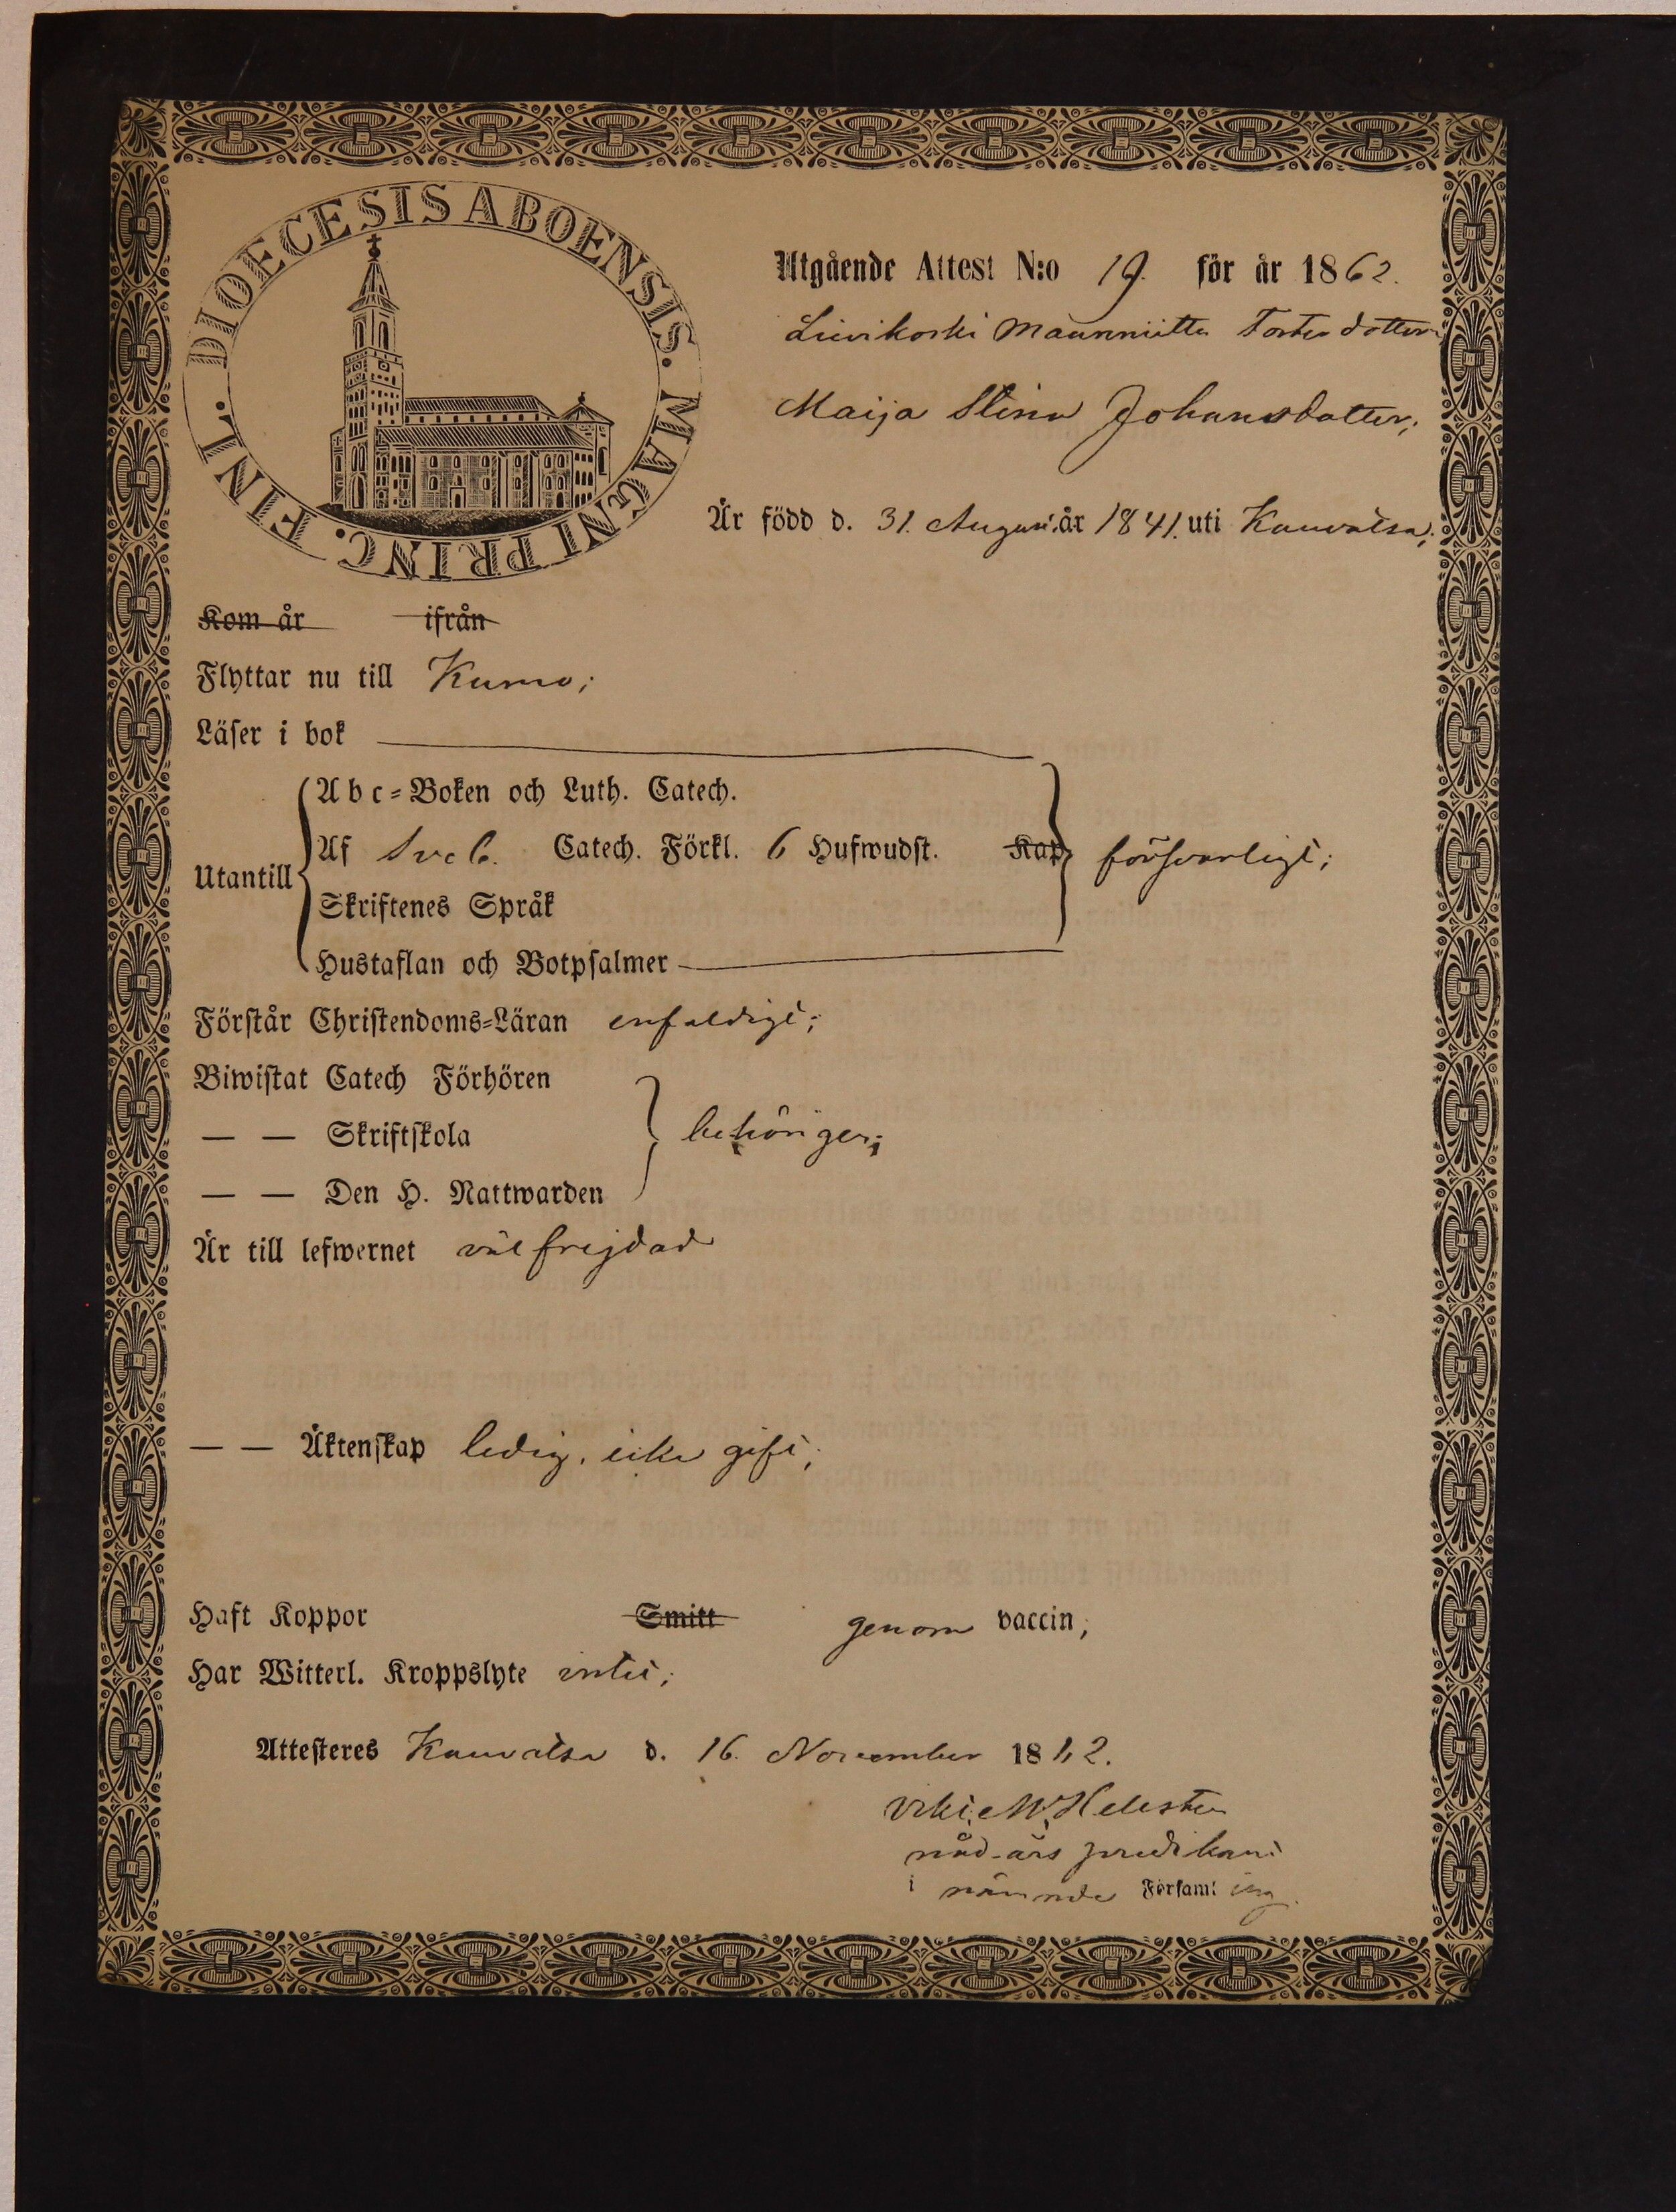 DIOECESIS ABOENSIS. MAGNI PRINC. FINL.
Utgående Attest N:o 19. för år 1862.
Liuvikoski Maunniittu Torpardotter
Maija Stina Johansdotter;
Är född d. 31. August. år 1841. uti Kauvatsa;
Kom år ifrån
Flyttar nu till Kumo;
Läser i bok
Abc=Boken och Luth. Catech.
Utantill
Af Sveb. Catech. Förkl. 6 Hufwudst. Kap. försvarligt;
Skriftenes Språk
Hustaflan och Botpsalmer
Förstår Christendoms=Läran enfaldigt;
Biwistat Catech Förhören
— — Skriftskola behörigen;
— — Den H. Nattwarden
Är till lefwernet väl frejdad
— — Äktenskap ledig, icke gift;
Haft Koppor Smitt genom vaccin;
Har Witterl. Kroppslyte intet;
Attesteres Kauvatsa d. 16. November 1862.
nåd-års predikant
i nämnde Församling.